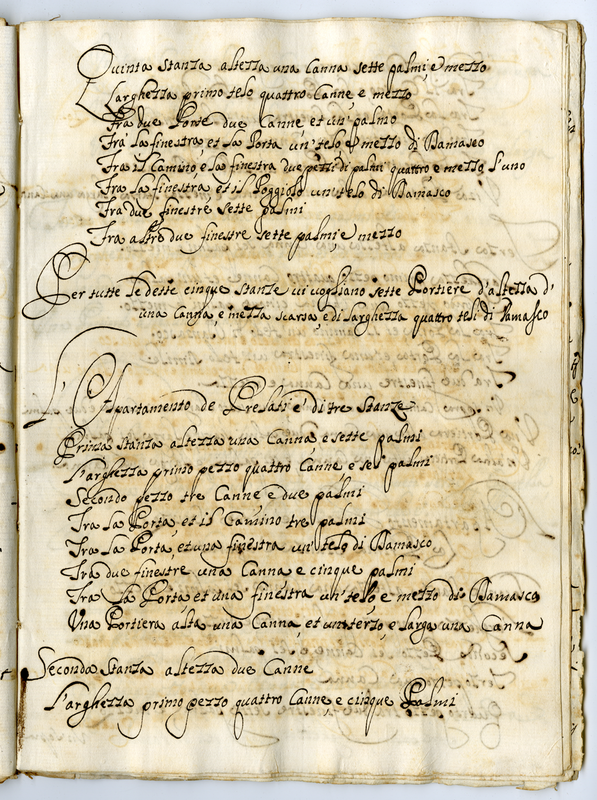 Quinta stanza altezza una Canna sette palmi, e mezzo
Larghezza primo telo quattro Canne, e mezzo
Fra due Porte due Canne, et un' palmo
Fra la finestra et la Porta un' telo, e mezzo di Damasco
Fra il Camino, e la finestra due pezzi di palmi quattro e mezzo l'uno
Fra la finestra et il Poggiolo un' telo di Damasco
Fra due finestre sette palmi
Fra altre due finestre sette palmi, e mezzo
Per tutte le dette cinque stanze vi vogliano sette Portiere d'altezza d'
una Canna, e mezza scarsa, e di larghezza quattro teli di Damasco
L'Apartamento de Prelati è di tre stanze
Prima stanza altezza una Canna, e sette palmi
Larghezza primo pezzo quattro Canne, e sei palmi
Secondo pezzo tre Canne, e due palmi
Fra la Porta, et il Camino tre palmi
Fra la Porta, et una finestra un' telo di Damasco
Fra due finestre una Canna, e cinque palmi
Fra la Porta et una finestra un' telo e mezzo di Damasco
Una Portiera alta una Canna, et un terzo, e larga una Canna
Seconda stanza altezza due Canne
Larghezza primo pezzo quattro Canne, e cinque Palmi